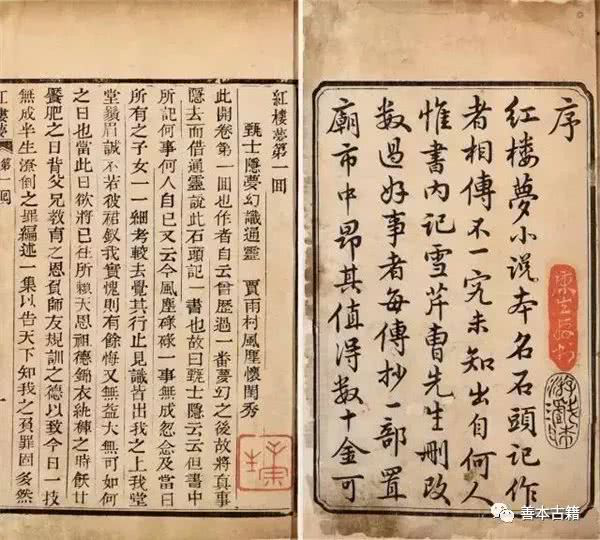 序
紅樓夢小說本名石頭記作
者相傳不一究未知出自何人
惟書內記雪芹曹先生刪改
数過好事者每傳抄一部置
廟市中昂其值得数十金可
紅樓夢第一回
甄士隱夢幻識通靈 賈雨村風塵懷閨秀
此開卷第一回也作者自云曾歷過一番夢幻之後故將真事
隱去而借通靈說此石頭記一書也故曰甄士隱云云但書中
所記何事何人自己又云今風塵碌碌一事無成忽念及當日
所有之子女一一細考較去覺其行止見識皆出我之上我堂
堂鬚眉誠不若彼裙釵我實愧則有餘悔又無益大無可如何
之日也當此日欲將已往所賴天恩祖德錦衣紈褲之時飫甘
饜肥之日背父兄教育之恩負師友規訓之德以致今日一技
無成半生潦倒之罪編述一集以告天下知我之負罪固多然
紅樓夢 第一回 一
善本古籍